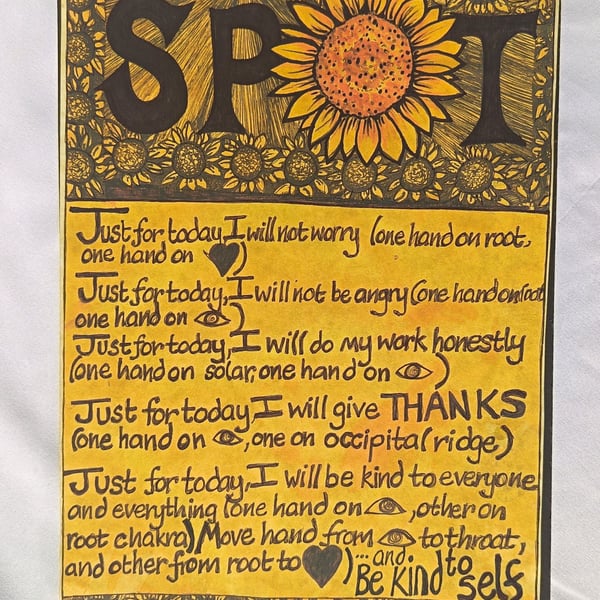 SPOT
Just for today, I will not worry (one hand on root,
one hand on ♥)
Just for today, I will not be angry (one hand on root
one hand on 👁)
Just for today, I will do my work honestly
(one hand on solar, one hand on 👁)
Just for today, I will give THANKS
(one hand on 👁, one on occipital ridge)
Just for today, I will be kind to everyone
and everything (one hand on 👁, other on
root chakra) (Move hand from 👁 to throat,
and other from root to ♥) ...and
Be kind to self